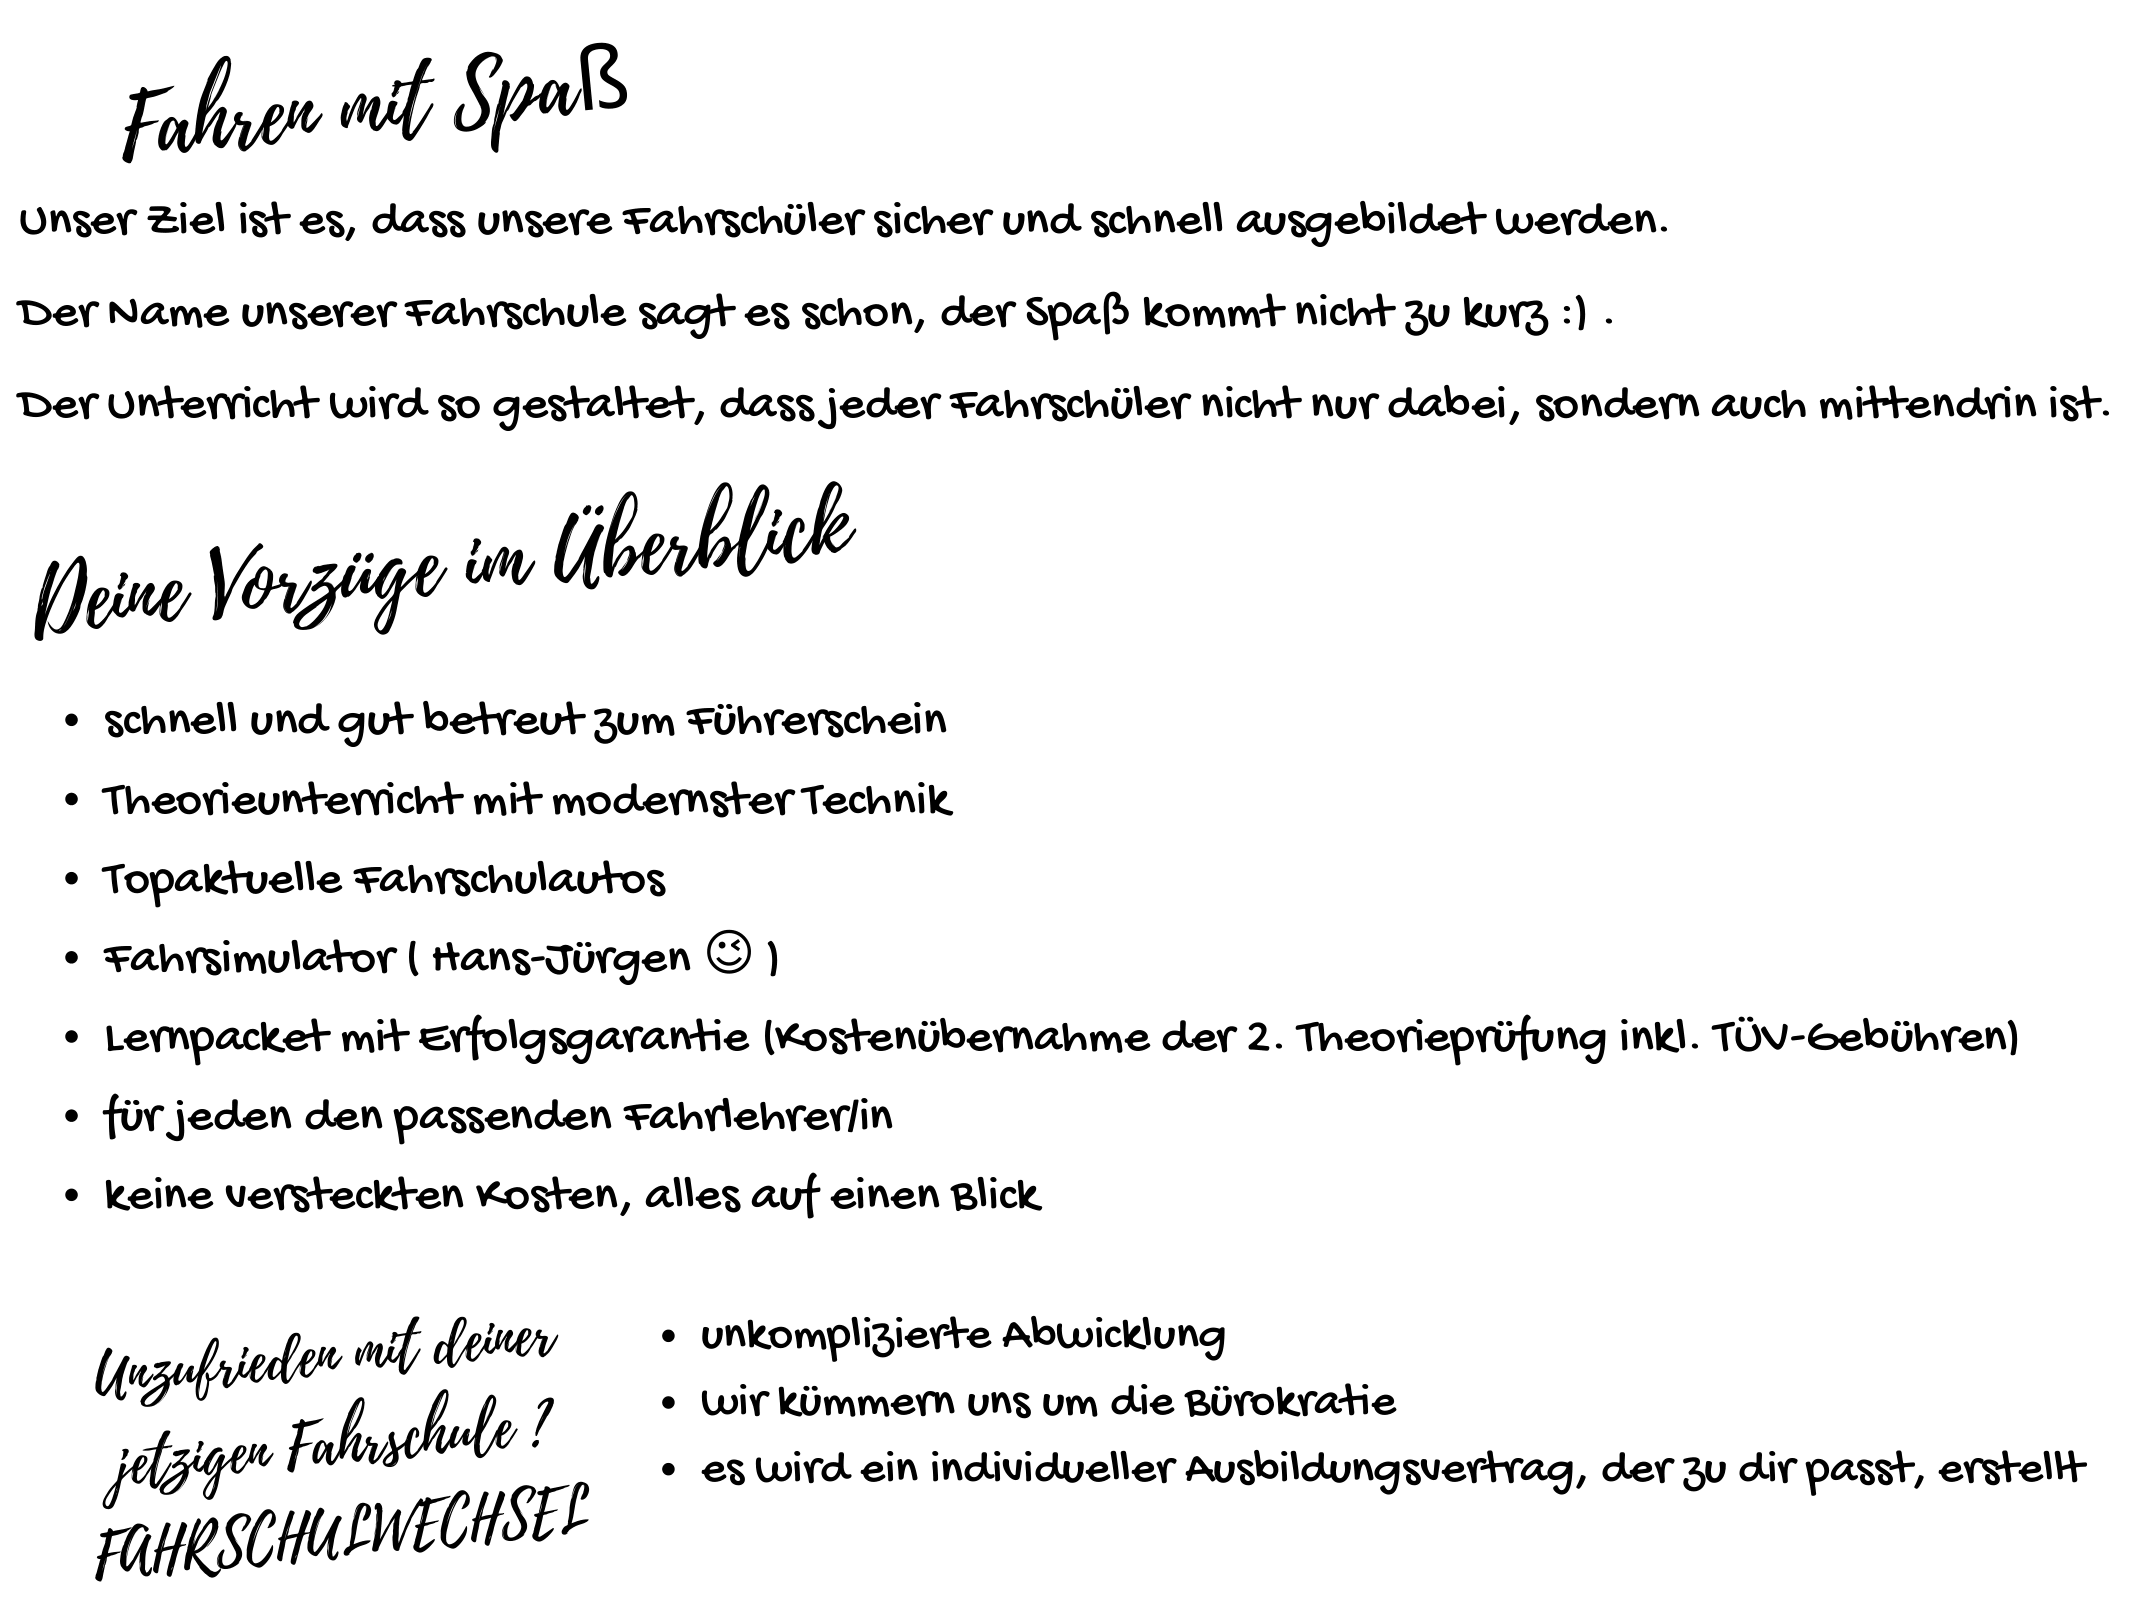 Fahren mit Spaß
Unser Ziel ist es, dass unsere Fahrschüler sicher und schnell ausgebildet werden.
Der Name unserer Fahrschule sagt es schon, der Spaß kommt nicht zu kurz :) .
Der Unterricht wird so gestaltet, dass jeder Fahrschüler nicht nur dabei, sondern auch mittendrin ist.
Deine Vorzüge im Überblick
• schnell und gut betreut zum Führerschein
• Theorieunterricht mit modernster Technik
• Topaktuelle Fahrschulautos
• Fahrsimulator ( Hans-Jürgen 😉 )
• Lernpacket mit Erfolgsgarantie (Kostenübernahme der 2. Theorieprüfung inkl. TÜV-Gebühren)
• für jeden den passenden Fahrlehrer/in
• keine versteckten Kosten, alles auf einen Blick
Unzufrieden mit deiner
jetzigen Fahrschule ?
FAHRSCHULWECHSEL
• unkomplizierte Abwicklung
• wir kümmern uns um die Bürokratie
• es wird ein individueller Ausbildungsvertrag, der zu dir passt, erstellt